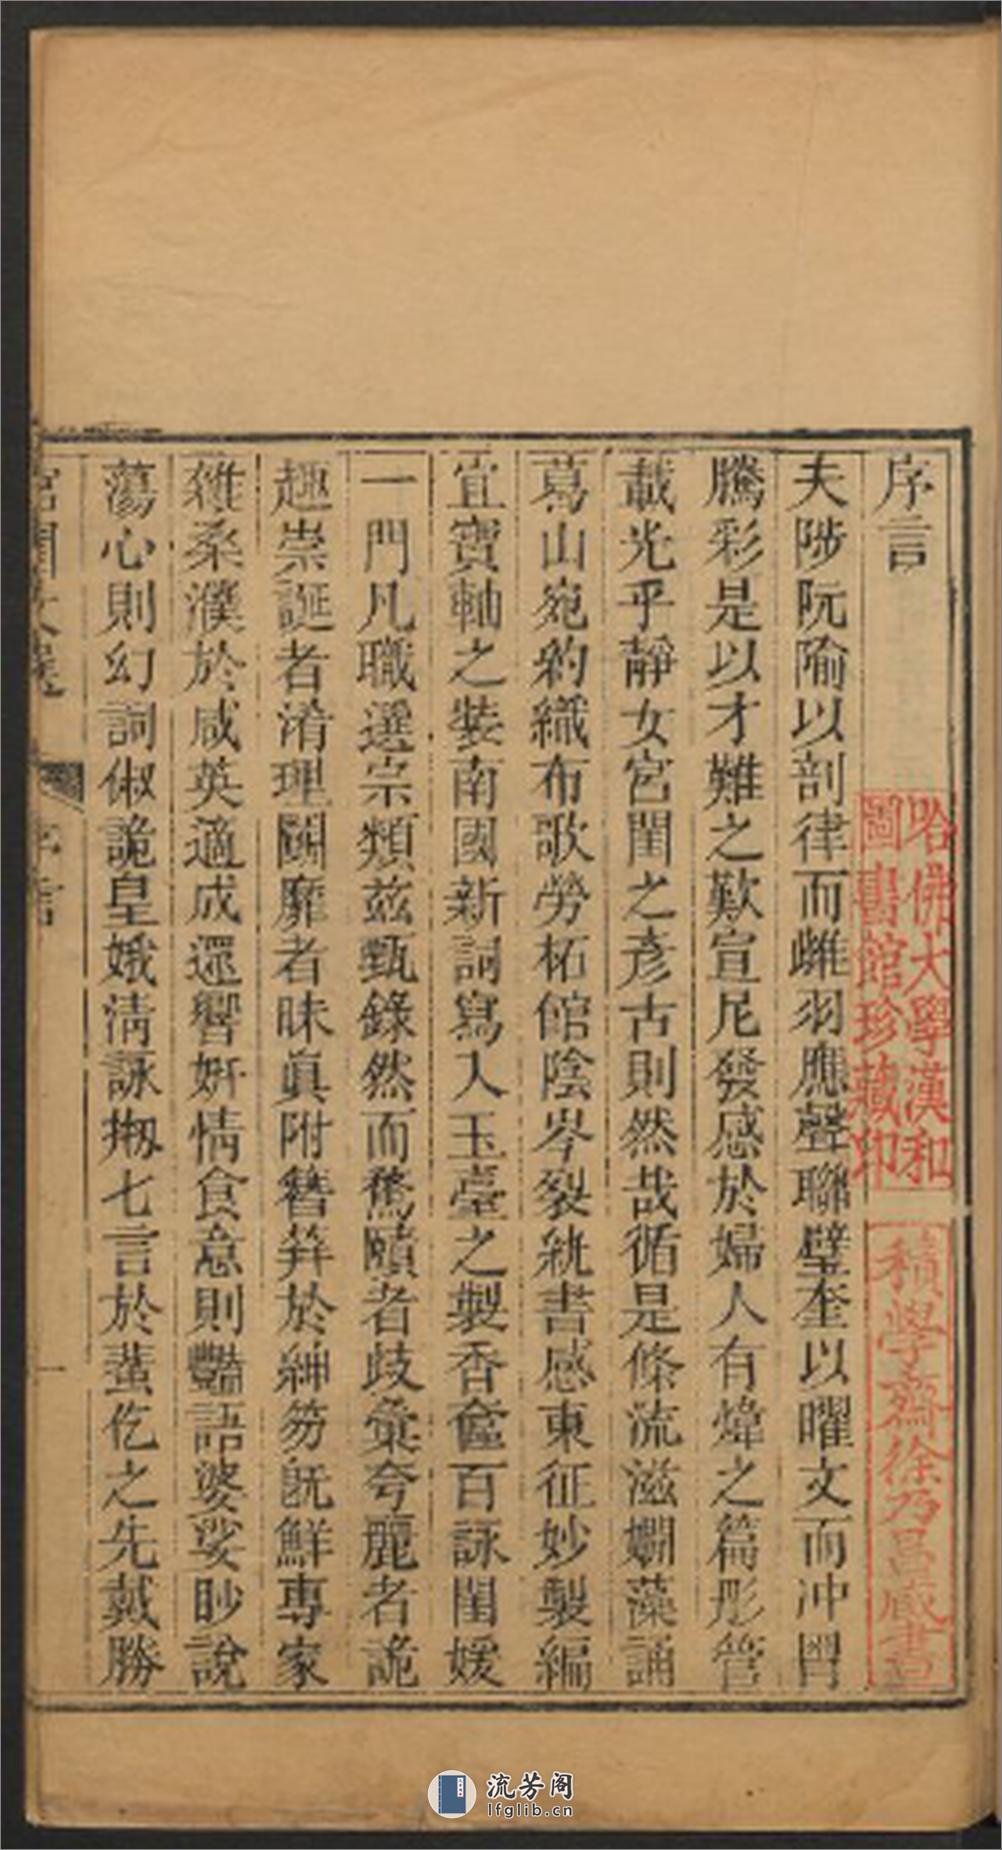 序言
夫陟阮隃以剖律而雌羽應聲聯璧奎以曜文而冲罔
騰彩是以才難之歎宣尼發感於婦人有煒之篇彤管
載光乎靜女宮閨之彦古則然哉循是條流滋嫺藻誦
葛山宛約織布歌勞柘館陰岑裂紈書感東征妙製編
宜寶軸之裝南國新詞寫入玉臺之製香奩百詠閨媛
一門凡職選宗類茲甄錄然而騖賾者歧彙夸麗者詭
趣崇誕者淆理鬬靡者昧真附簪笄於紳笏既鮮專家
雜桑濮於咸英適成還響妍情食意則豔語婆娑眇說
蕩心則幻詞俶詭皇娥淸詠捌七言於蚩仡之先戴勝
序言
一
哈佛大學漢和
圖書館珍藏印
積學齋徐乃昌藏書
流芳阁
lfglib.cn